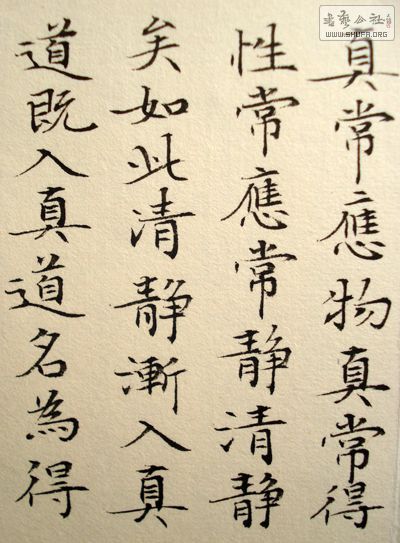 真常應物真常得
性常應常静清静
矣如此清静漸入真
道既入真道名為得
書藝公社
WWW.SHUFA.ORG